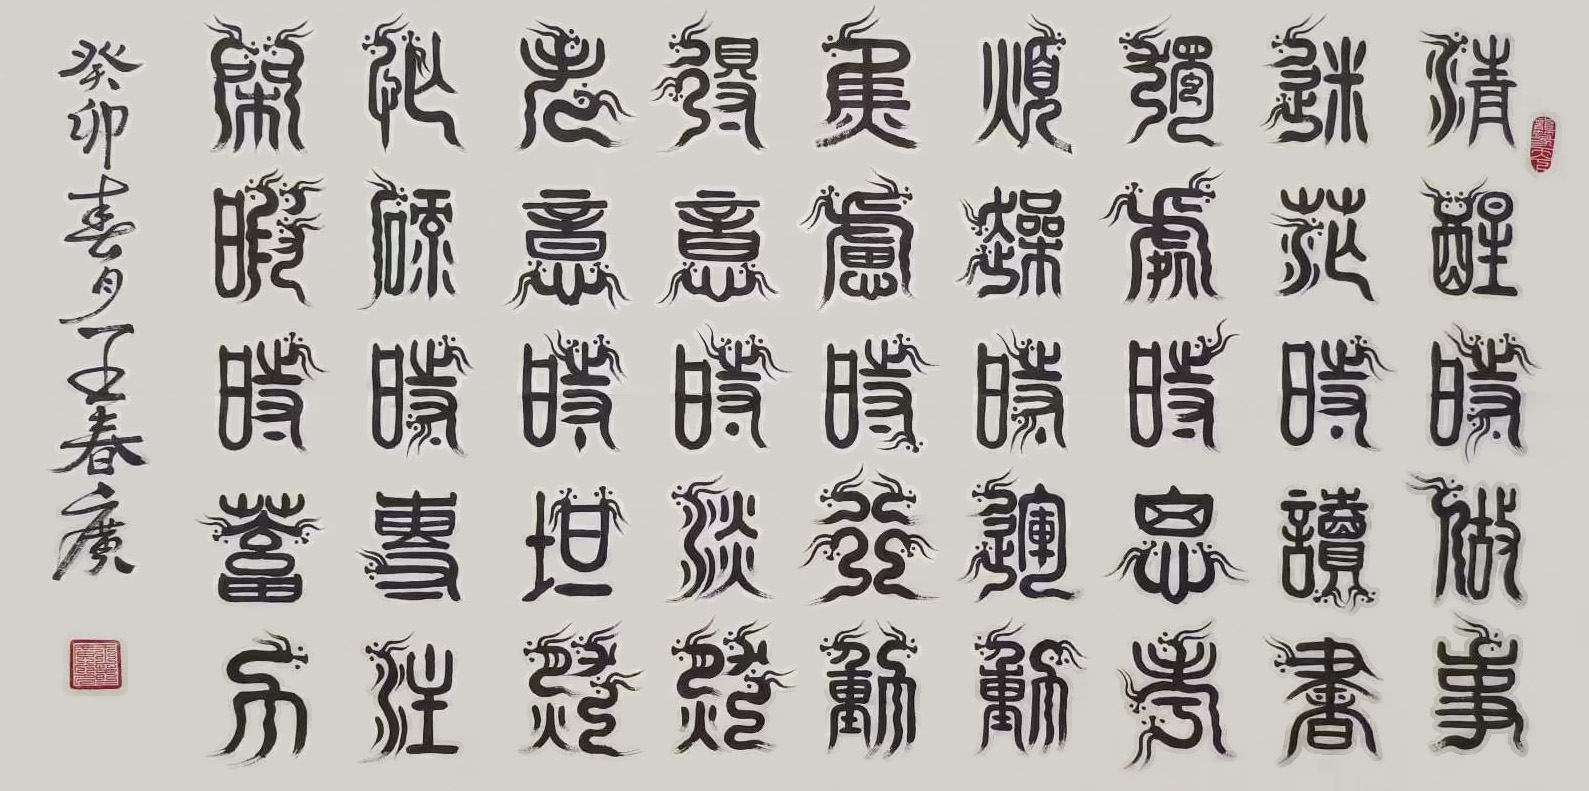 清醒時做事
迷茫時讀書
獨處時思考
煩躁時運動
焦慮時行動
得意時淡然
失意時坦然
忙碌時專注
閑暇時蓄力
癸卯春月王春廣